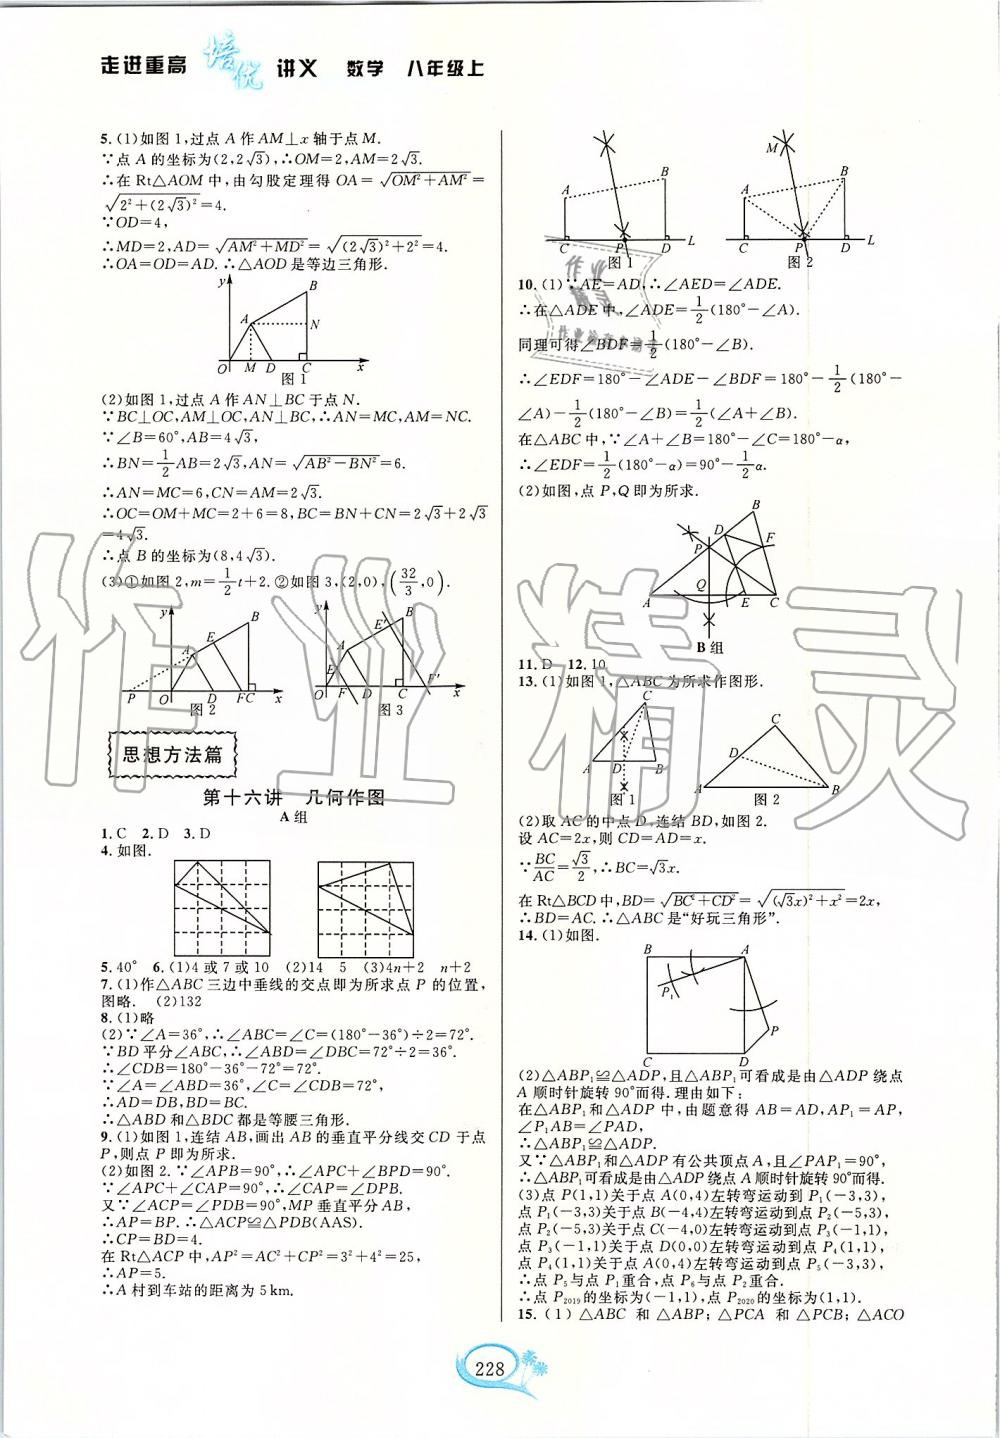 走进重高 培优 讲义 数学 八年级上
5.(1)如图1,过点A作AM⊥x轴于点M.
∵点A的坐标为(2,2√3),∴OM=2,AM=2√3.
∴在Rt△AOM中,由勾股定理得OA=√(OM²+AM²)=
√(2²+(2√3)²)=4.
∵OD=4,
∴MD=2,AD=√(AM²+MD²)=√((2√3)²+2²)=4.
∴OA=OD=AD.∴△AOD是等边三角形.
y B A N O M D C x
图1
(2)如图1,过点A作AN⊥BC于点N.
∵BC⊥OC,AM⊥OC,AN⊥BC,∴AN=MC,AM=NC.
∵∠B=60°,AB=4√3,
∴BN=1/2AB=2√3,AN=√(AB²−BN²)=6.
∴AN=MC=6,CN=AM=2√3.
∴OC=OM+MC=2+6=8,BC=BN+CN=2√3+2√3
=4√3.
∴点B的坐标为(8,4√3).
(3)①如图2,m=1/2t+2.②如图3,(2,0),(32/3,0).
y B E A P O D F C x
y E′ B A E O F D C F′ x
图2 图3
思想方法篇
第十六讲 几何作图
A组
1.C 2.D 3.D
4.如图.
5.40° 6.(1)4或7或10 (2)14 5 (3)4n+2 n+2
7.(1)作△ABC三边中垂线的交点即为所求点P的位置,
图略. (2)132
8.(1)略
(2)∵∠A=36°,∴∠ABC=∠C=(180°−36°)÷2=72°.
∵BD平分∠ABC,∴∠ABD=∠DBC=72°÷2=36°.
∴∠CDB=180°−36°−72°=72°.
∵∠A=∠ABD=36°,∠C=∠CDB=72°,
∴AD=DB,BD=BC.
∴△ABD和△BDC都是等腰三角形.
9.(1)如图1,连结AB,画出AB的垂直平分线交CD于点
P,则点P即为所求.
(2)如图2.∵∠APB=90°,∴∠APC+∠BPD=90°.
∵∠APC+∠CAP=90°,∴∠CAP=∠DPB.
又∵∠ACP=∠PDB=90°,MP垂直平分AB,
∴AP=BP.∴△ACP≌△PDB(AAS).
∴CP=BD=4.
在Rt△ACP中,AP²=AC²+CP²=3²+4²=25,
∴AP=5.
∴A村到车站的距离为5km.
B A C P D L
M B A C P D L
图1 图2
10.(1)∵AE=AD,∴∠AED=∠ADE.
∴在△ADE中,∠ADE=1/2(180°−∠A).
同理可得∠BDF=1/2(180°−∠B).
∴∠EDF=180°−∠ADE−∠BDF=180°−1/2(180°−
∠A)−1/2(180°−∠B)=1/2(∠A+∠B).
在△ABC中,∵∠A+∠B=180°−∠C=180°−α,
∴∠EDF=1/2(180°−α)=90°−1/2α.
(2)如图,点P,Q即为所求.
B D F P Q A E C
B组
11.D 12.10
13.(1)如图1,△ABC为所求作图形.
C A D B
C D A B
图1 图2
(2)取AC的中点D,连结BD,如图2.
设AC=2x,则CD=AD=x.
∵BC/AC=√3/2,∴BC=√3x.
在Rt△BCD中,BD=√(BC²+CD²)=√((√3x)²+x²)=2x,
∴BD=AC.∴△ABC是“好玩三角形”.
14.(1)如图.
B A P₁ P C D
(2)△ABP₁≌△ADP,且△ABP₁可看成是由△ADP绕点
A顺时针旋转90°而得.理由如下:
在△ABP₁和△ADP中,由题意得AB=AD,AP₁=AP,
∠P₁AB=∠PAD,
∴△ABP₁≌△ADP.
又∵△ABP₁和△ADP有公共顶点A,且∠PAP₁=90°,
∴△ABP₁可看成是由△ADP绕点A顺时针旋转90°而得.
(3)点P(1,1)关于点A(0,4)左转弯运动到P₁(−3,3),
点P₁(−3,3)关于点B(−4,4)左转弯运动到点P₂(−5,3),
点P₂(−5,3)关于点C(−4,0)左转弯运动到点P₃(−1,1),
点P₃(−1,1)关于点D(0,0)左转弯运动到点P₄(1,1),
点P₄(1,1)关于点A(0,4)左转弯运动到点P₅(−3,3),
∴点P₅与点P₁重合,点P₆与点P₂重合.
∴点P₂₀₁₉的坐标为(−1,1),点P₂₀₂₀的坐标为(1,1).
15.(1)△ABC 和△ABP;△PCA 和△PCB;△ACO
228
作业精灵